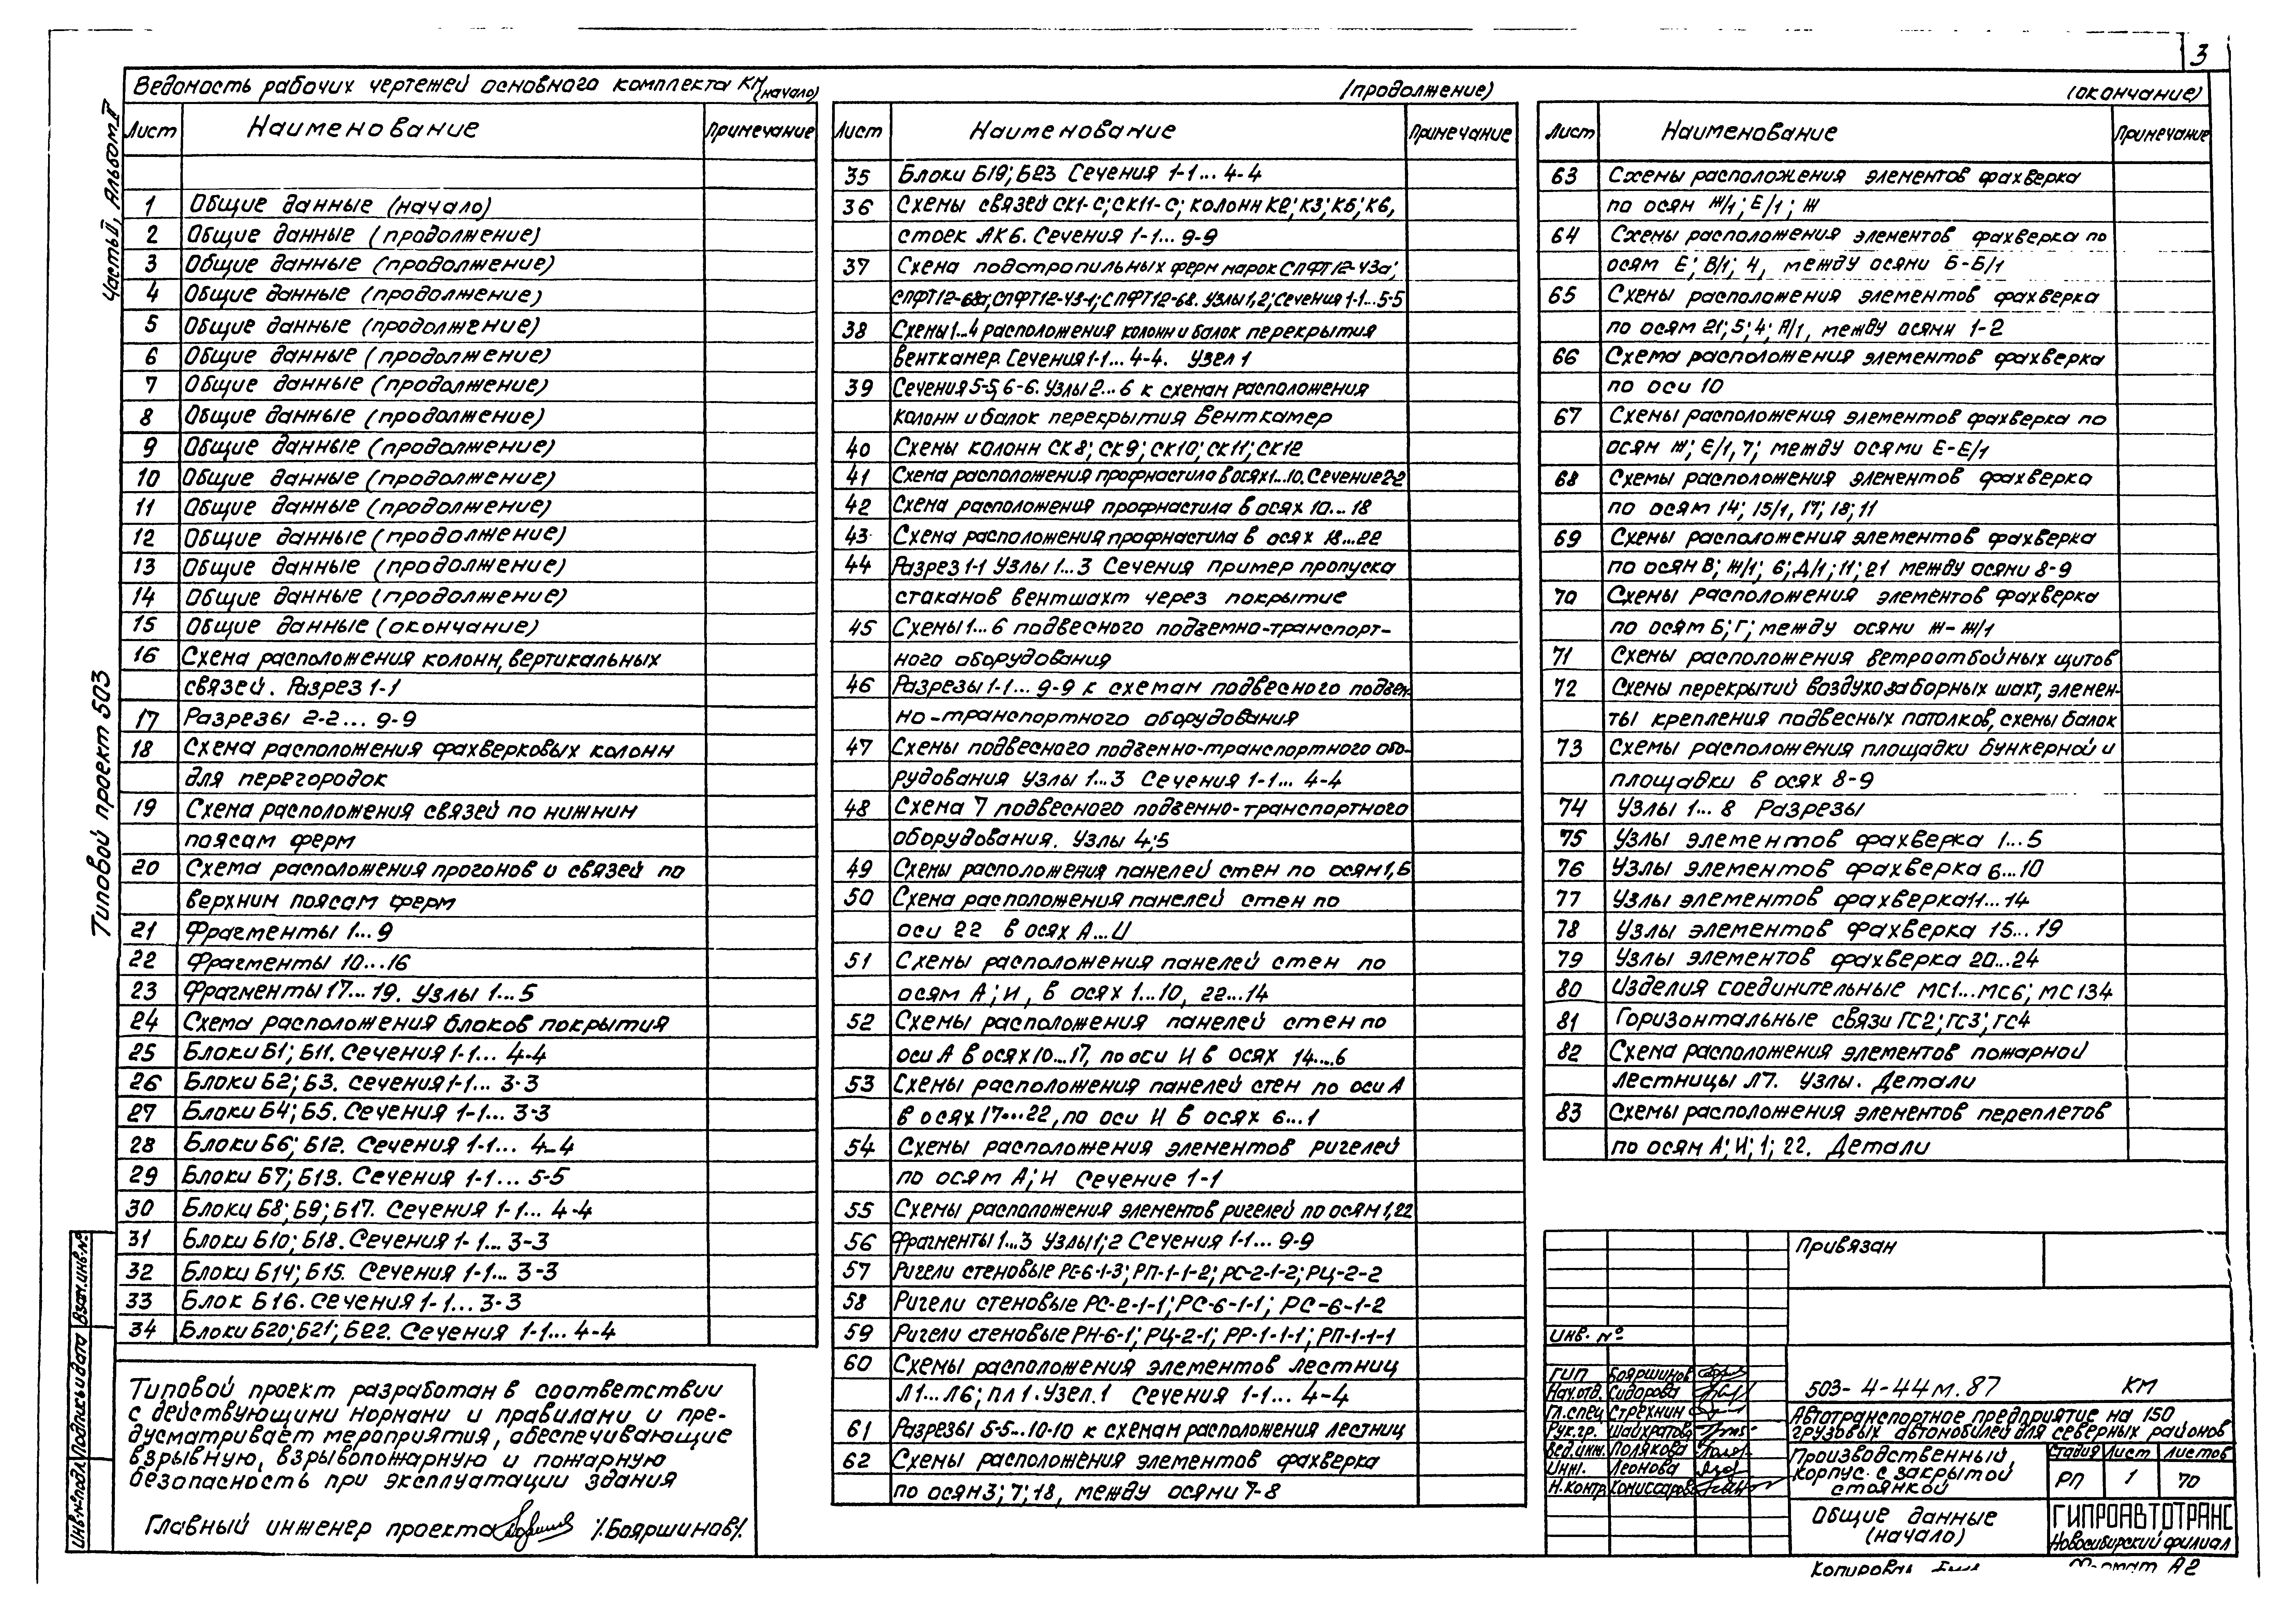 3
Ведомость рабочих чертежей основного комплекта КМ (начало)
Лист Наименование Примечание
1 Общие данные (начало)
2 Общие данные (продолжение)
3 Общие данные (продолжение)
4 Общие данные (продолжение)
5 Общие данные (продолжение)
6 Общие данные (продолжение)
7 Общие данные (продолжение)
8 Общие данные (продолжение)
9 Общие данные (продолжение)
10 Общие данные (продолжение)
11 Общие данные (продолжение)
12 Общие данные (продолжение)
13 Общие данные (продолжение)
14 Общие данные (продолжение)
15 Общие данные (окончание)
16 Схема расположения колонн, вертикальных
связей. Разрез 1-1
17 Разрезы 2-2... 9-9
18 Схема расположения фахверковых колонн
для перегородок
19 Схема расположения связей по нижним
поясам ферм
20 Схема расположения прогонов и связей по
верхним поясам ферм
21 Фрагменты 1...9
22 Фрагменты 10...16
23 Фрагменты 17...19. Узлы 1...5
24 Схема расположения блоков покрытия
25 Блоки Б1; Б11. Сечения 1-1... 4-4
26 Блоки Б2; Б3. Сечения 1-1... 3-3
27 Блоки Б4; Б5. Сечения 1-1... 3-3
28 Блоки Б6; Б12. Сечения 1-1... 4-4
29 Блоки Б7; Б13. Сечения 1-1... 5-5
30 Блоки Б8; Б9; Б17. Сечения 1-1... 4-4
31 Блоки Б10; Б18. Сечения 1-1... 3-3
32 Блоки Б14; Б15. Сечения 1-1... 3-3
33 Блок Б16. Сечения 1-1... 3-3
34 Блоки Б20; Б21; Б22. Сечения 1-1... 4-4
(продолжение)
Лист Наименование Примечание
35 Блоки Б19; Б23 Сечения 1-1... 4-4
36 Схемы связей СК1-С; СК11-С; колонн К2; К3; К5; К6,
стоек АК6. Сечения 1-1... 9-9
37 Схема подстропильных ферм марок СПФТ12-43а;
СПФТ12-68а; СПФТ12-43-1; СПФТ12-68. Узлы 1,2; Сечения 1-1...5-5
38 Схемы 1...4 расположения колонн и балок перекрытия
Венткамер. Сечения 1-1... 4-4. Узел 1
39 Сечения 5-5, 6-6. Узлы 2...6 к схемам расположения
колонн и балок перекрытия Венткамер
40 Схемы колонн СК8; СК9; СК10; СК11; СК12
41 Схема расположения профнастила в осях 1...10. Сечение 2-2
42 Схема расположения профнастила в осях 10...18
43 Схема расположения профнастила в осях 18...22
44 Разрез 1-1 Узлы 1...3 Сечения пример пропуска
стаканов вентшахт через покрытие
45 Схемы 1...6 подвесного подъемно-транспорт-
ного оборудования
46 Разрезы 1-1... 9-9 к схемам подвесного подъем-
но-транспортного оборудования
47 Схемы подвесного подъемно-транспортного обо-
рудования Узлы 1...3 Сечения 1-1... 4-4
48 Схема 7 подвесного подъемно-транспортного
оборудования. Узлы 4;5
49 Схемы расположения панелей стен по осям 1, Б
50 Схема расположения панелей стен по
оси 22 в осях А...И
51 Схемы расположения панелей стен по
осям А; И, в осях 1...10, 22...14
52 Схемы расположения панелей стен по
оси А в осях 10...17, по оси И в осях 14...6
53 Схемы расположения панелей стен по оси А
в осях 17...22, по оси И в осях 6...1
54 Схемы расположения элементов ригелей
по осям А; И Сечение 1-1
55 Схемы расположения элементов ригелей по осям 1,22
56 Фрагменты 1...3 Узлы 1; 2 Сечения 1-1... 9-9
57 Ригели стеновые РС-6-1-3; РП-1-1-2; РС-2-1-2; РЦ-2-2
58 Ригели стеновые РС-2-1-1; РС-6-1-1; РС-6-1-2
59 Ригели стеновые РН-6-1; РЦ-2-1; РР-1-1-1; РП-1-1-1
60 Схемы расположения элементов лестниц
Л1...Л6; ПЛ1. Узел.1 Сечения 1-1... 4-4
61 Разрезы 5-5...10-10 к схемам расположения лестниц
62 Схемы расположения элементов фахверка
по осям 3; 7; 18, между осями 7-8
(окончание)
Лист Наименование Примечание
63 Схемы расположения элементов фахверка
по осям Ж/1; Е/1; Ж
64 Схемы расположения элементов фахверка по
осям Е; В/1; 4, между осями Б-Б/1
65 Схемы расположения элементов фахверка
по осям 21; 5; 4; А/1, между осями 1-2
66 Схема расположения элементов фахверка
по оси 10
67 Схемы расположения элементов фахверка по
осям Ж; Е/1, 7; между осями Е-Е/1
68 Схемы расположения элементов фахверка
по осям 14; 15/1, 17; 18; 11
69 Схемы расположения элементов фахверка
по осям В; Ж/1; 6; Д/1; 11; 21 между осями 8-9
70 Схемы расположения элементов фахверка
по осям Б; Г; между осями Ж-Ж/1
71 Схемы расположения ветроотбойных щитов
72 Схемы перекрытий воздухозаборных шахт, элемен-
ты крепления подвесных потолков, схемы балок
73 Схемы расположения площадки бункерной и
площадки в осях 8-9
74 Узлы 1... 8 Разрезы
75 Узлы элементов фахверка 1...5
76 Узлы элементов фахверка 6...10
77 Узлы элементов фахверка 11...14
78 Узлы элементов фахверка 15...19
79 Узлы элементов фахверка 20...24
80 Изделия соединительные МС1...МС6; МС134
81 Горизонтальные связи ГС2; ГС3; ГС4
82 Схема расположения элементов пожарной
лестницы Л7. Узлы. Детали
83 Схемы расположения элементов переплетов
по осям А; И; 1; 22. Детали
Часть II, Альбом II
Типовой проект 503
Взам.инв.№
Подпись и дата
Инв.№подл.
Типовой проект разработан в соответствии
с действующими нормами и правилами и пре-
дусматривает мероприятия, обеспечивающие
взрывную, взрывопожарную и пожарную
безопасность при эксплуатации здания
Главный инженер проекта /Бояршинов/
Привязан
Инв. №
ГИП Бояршинов
Нач.отд. Сидорова
Гл.спец Стрехнин
Рук.гр. Шайхратова
Вед.инж. Полякова
Инж. Леонова
Н.контр Комиссаров
503-4-44м.87 КМ
Автотранспортное предприятие на 150
грузовых автомобилей для северных районов
Производственный
корпус с закрытой
стоянкой
Стадия Лист Листов
РП 1 70
Общие данные
(начало)
ГИПРОАВТОТРАНС
Новосибирский филиал
Копировал
Формат А2